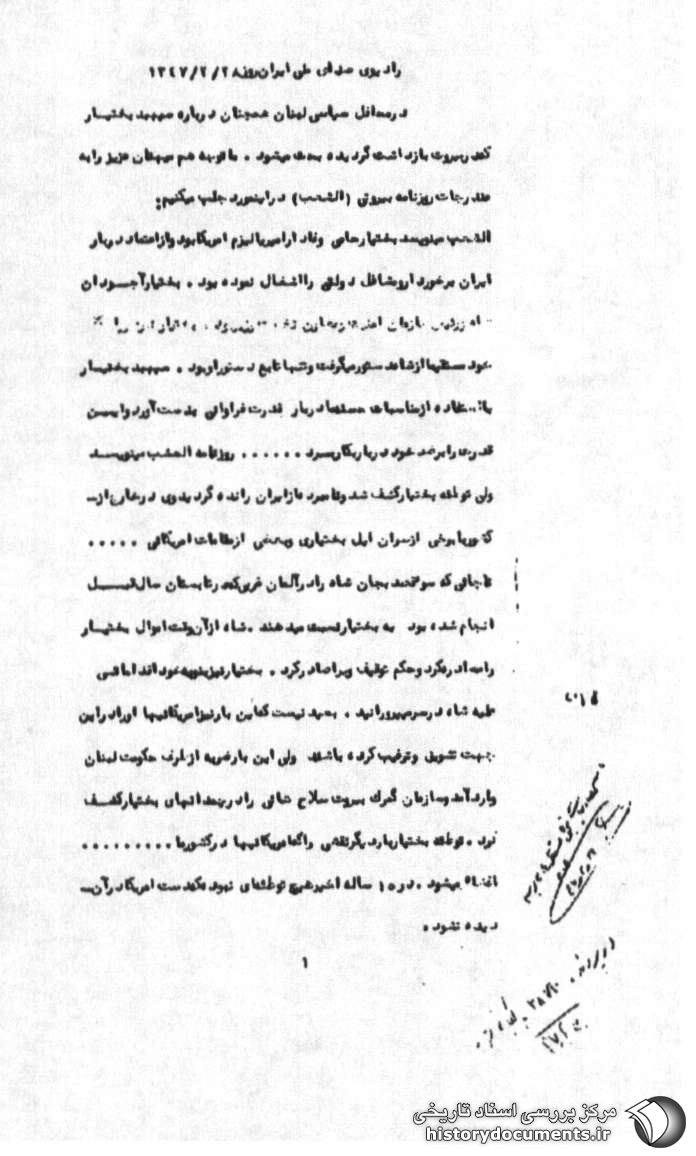 رادیوی صدای ملی ایران روز ۲۸/۲/۱۳۴۷
در محافل سیاسی لبنان همچنان درباره سپهبد بختیار
که در بیروت بازداشت گردیده بحث میشود . ما توجه هم میهنان عزیز را به
مندرجات روزنامه بیروتی (الشعب) در اینمورد جلب میکنیم:
الشعب مینویسد بختیار حامی وفادار امپریالیزم امریکا بود و از اعتماد دربار
ایران برخوردار و مشاغل دولتی را اشغال نموده بود . بختیار آجودان
شاه و رئیس سازمان امنیت و معاون نخست وزیر بود . بختیار
خود مستقیما از شاه دستور میگرفت و تنها تابع دستور او بود . سپهبد بختیار
با استفاده از مناسبات حسنه با دربار قدرت فراوانی بدست آورد و ایسن
قدرت را بر ضد خود دربار بکار میبرد . . . . . . روزنامه الشعب مینویسد
ولی توطئه بختیار کشف شد و نامبرده از ایران رانده گردید وی در خارج از
کشور با برخی از سران ایل بختیاری و بعضی از مقامات امریکائی . . . . .
تا جائی که سوءقصد بجان شاه را در آلمان غربی که در تابستان سال قبل
انجام شده بود به بختیار نسبت میدهند . شاه از آن وقت اموال بختیار
را مصادره کرد و حکم توقیف ویرا صادر کرد . بختیار نیز بنوبه خود
علیه شاه در سر میپرورانید . بعید نیست که این بار نیز امریکائیها او را در این
جهت تشویق و ترغیب کرده باشند ولی این بار ضربه از طرف حکومت لبنان
وارد آمد و سازمان گمرک بیروت سلاح هائی را در چمدانهای بختیار کشف
نمود . توطئه بختیار بار دیگر نقشی را که امریکائیها در کشور ما . . . . . . . . .
افشاء میشود . در ۱۵ ساله اخیر هیچ توطئه‌ای نبود که دست امریکا در آن
دیده نشود .
۱
مرکز بررسی اسناد تاریخی
historydocuments.ir